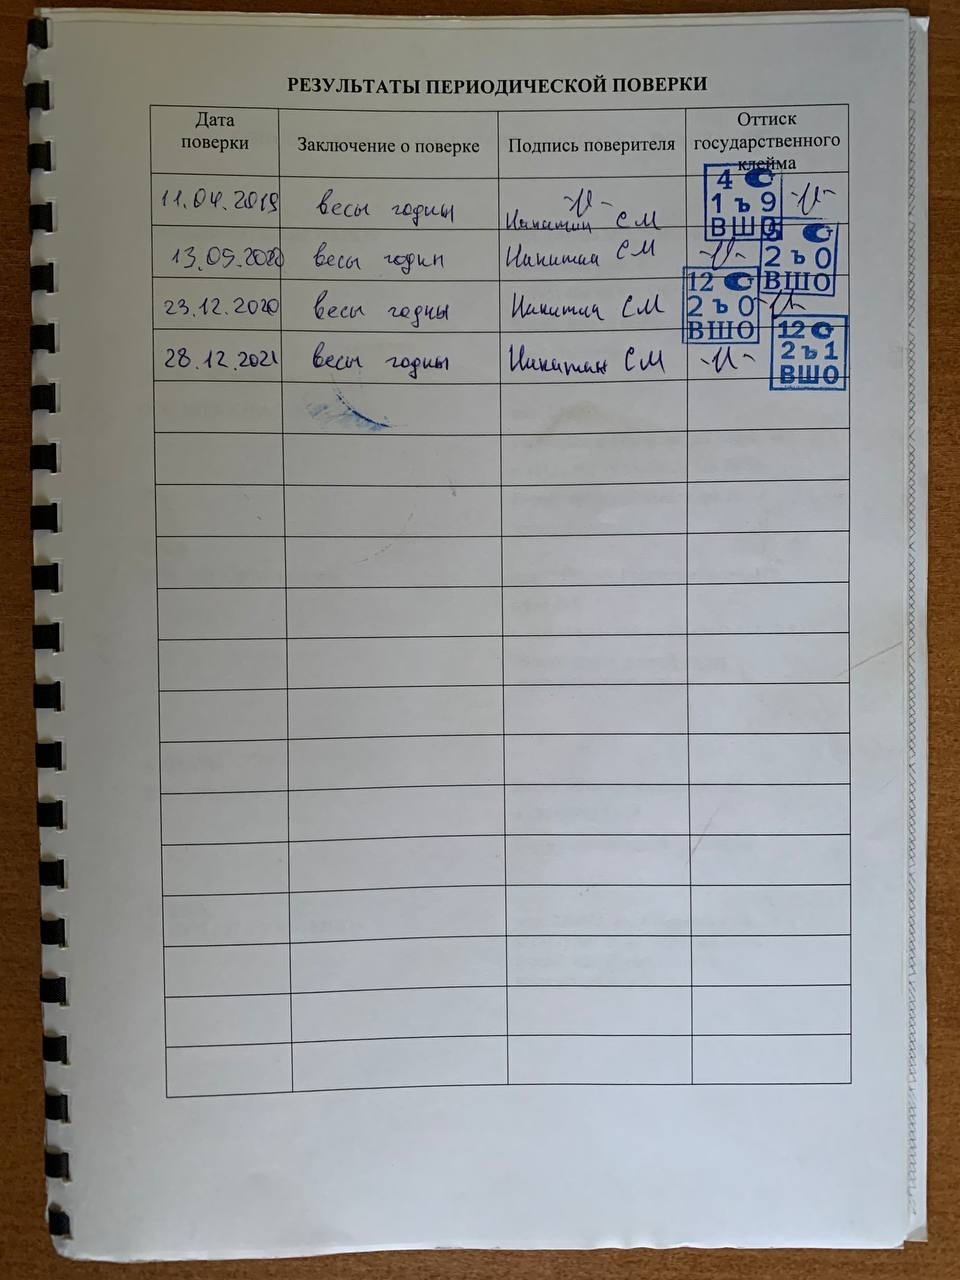 РЕЗУЛЬТАТЫ ПЕРИОДИЧЕСКОЙ ПОВЕРКИ
Дата
поверки
Заключение о поверке
Подпись поверителя
Оттиск
государственного
клейма
11.04.2019 весы годны Никитин СМ
4
1 ъ 9
ВШО
13.05.2020 весы годны Никитин СМ
5
2 ъ 0
ВШО
23.12.2020 весы годны Никитин СМ
12
2 ъ 0
ВШО
28.12.2021 весы годны Никитин СМ
12
2 ъ 1
ВШО